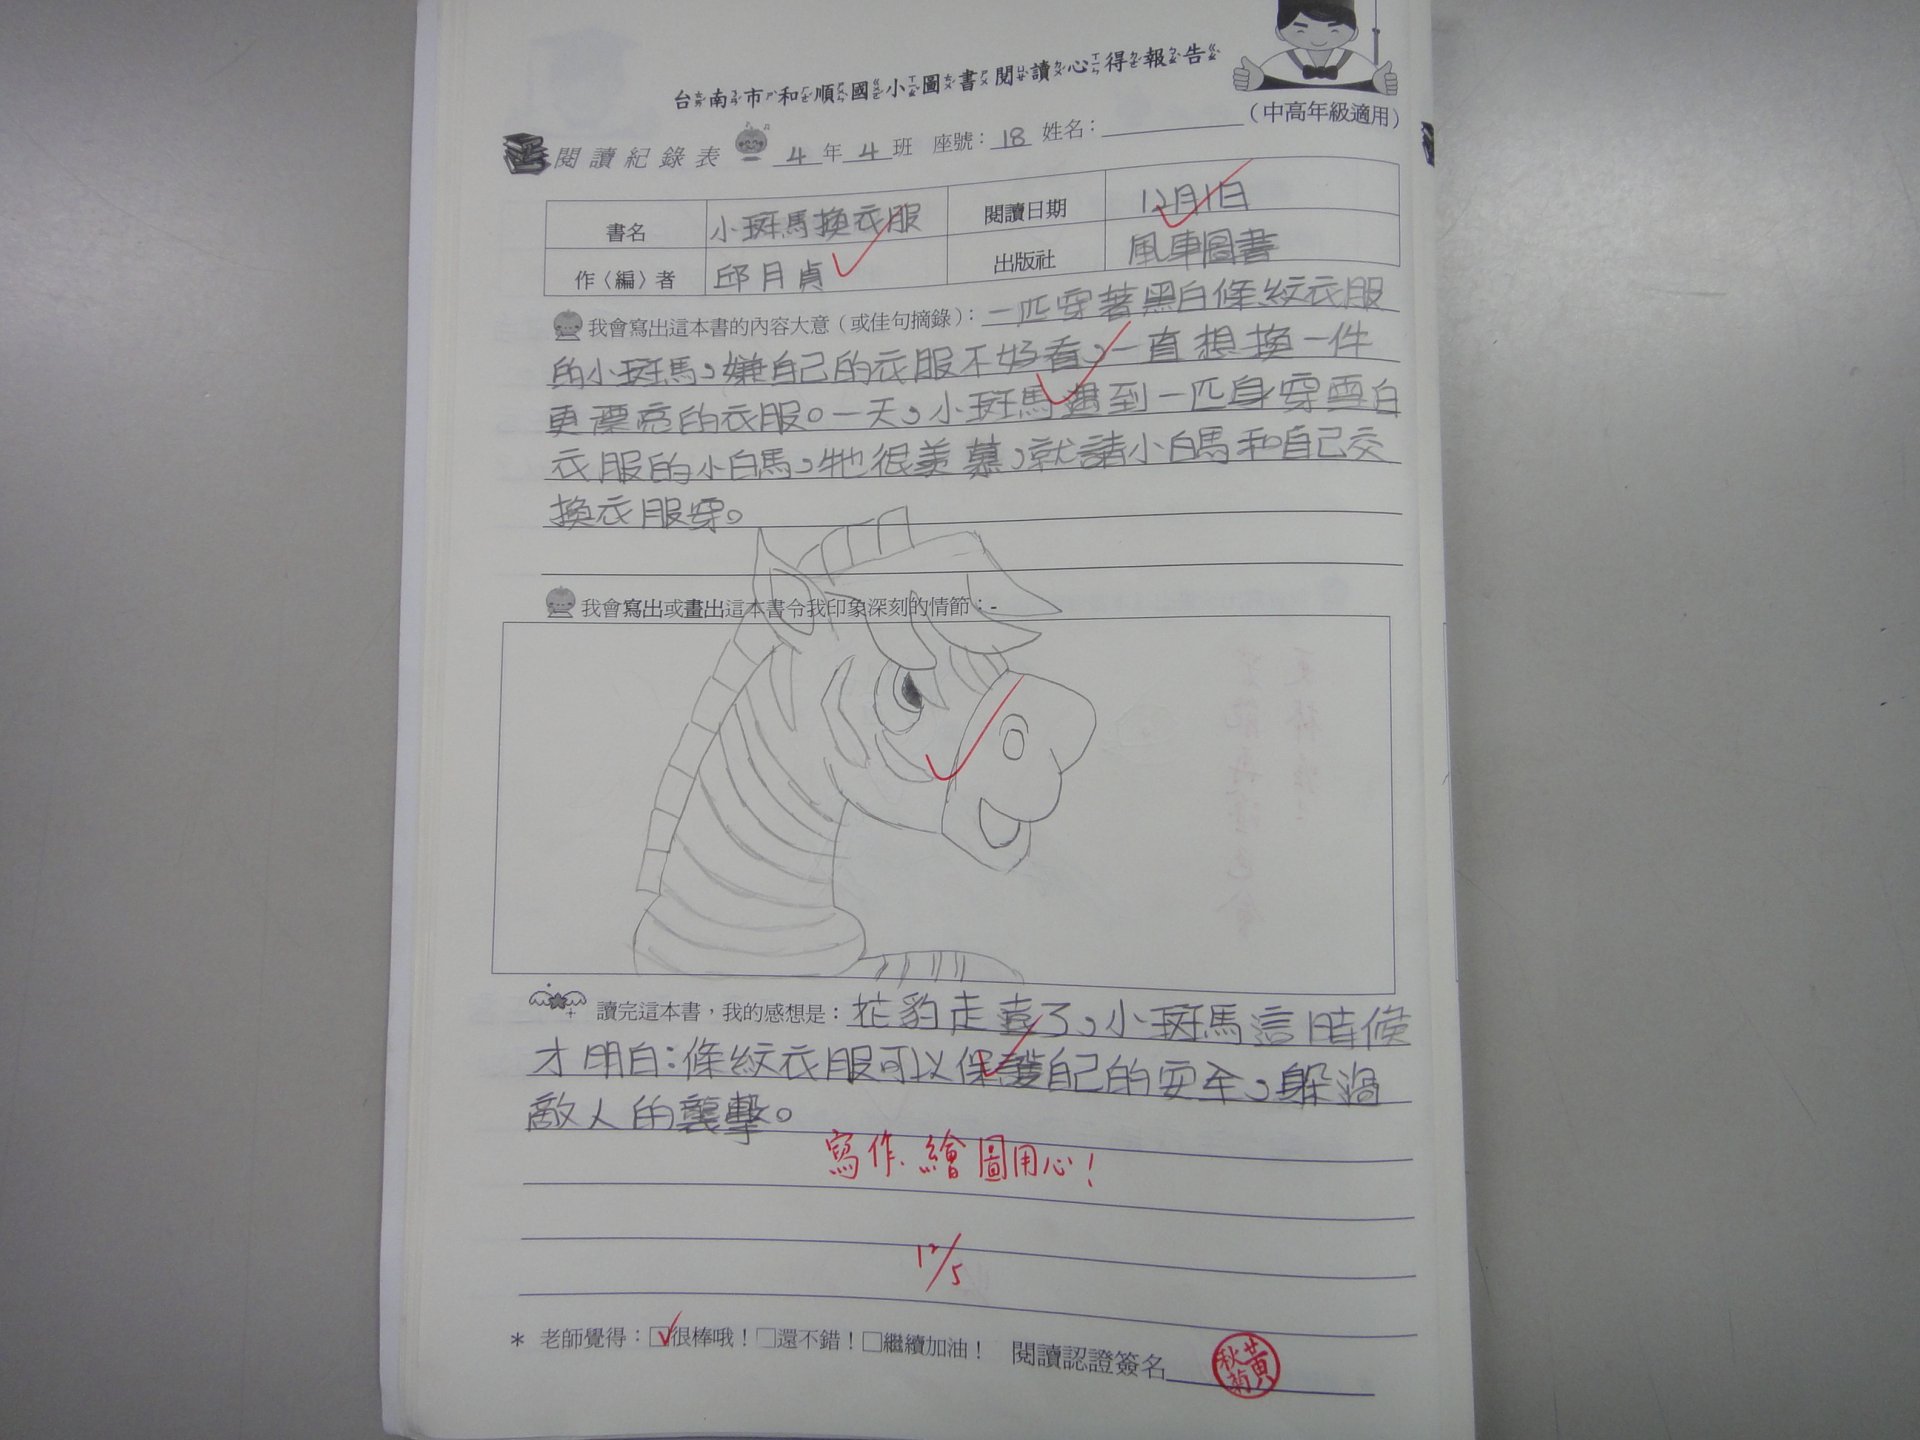 台南市和順國小圖書閱讀心得報告
（中高年級適用）
閱讀紀錄表 4年4班 座號：18 姓名：
書名 小斑馬換衣服 閱讀日期 12月1日
作〈編〉者 邱月貞 出版社 風車圖書
我會寫出這本書的內容大意（或佳句摘錄）：一匹穿著黑白條紋衣服
的小斑馬，嫌自己的衣服不好看，一直想換一件
更漂亮的衣服。一天，小斑馬遇到一匹身穿雪白
衣服的小白馬，牠很羨慕，就請小白馬和自己交
換衣服穿。
我會寫出或畫出這本書令我印象深刻的情節：-
讀完這本書，我的感想是：花豹走遠了，小斑馬這時候
才明白：條紋衣服可以保護自己的安全，躲過
敵人的襲擊。
寫作、繪圖用心！
12/5
* 老師覺得：☑很棒哦！□還不錯！□繼續加油！ 閱讀認證簽名
黃秋菊